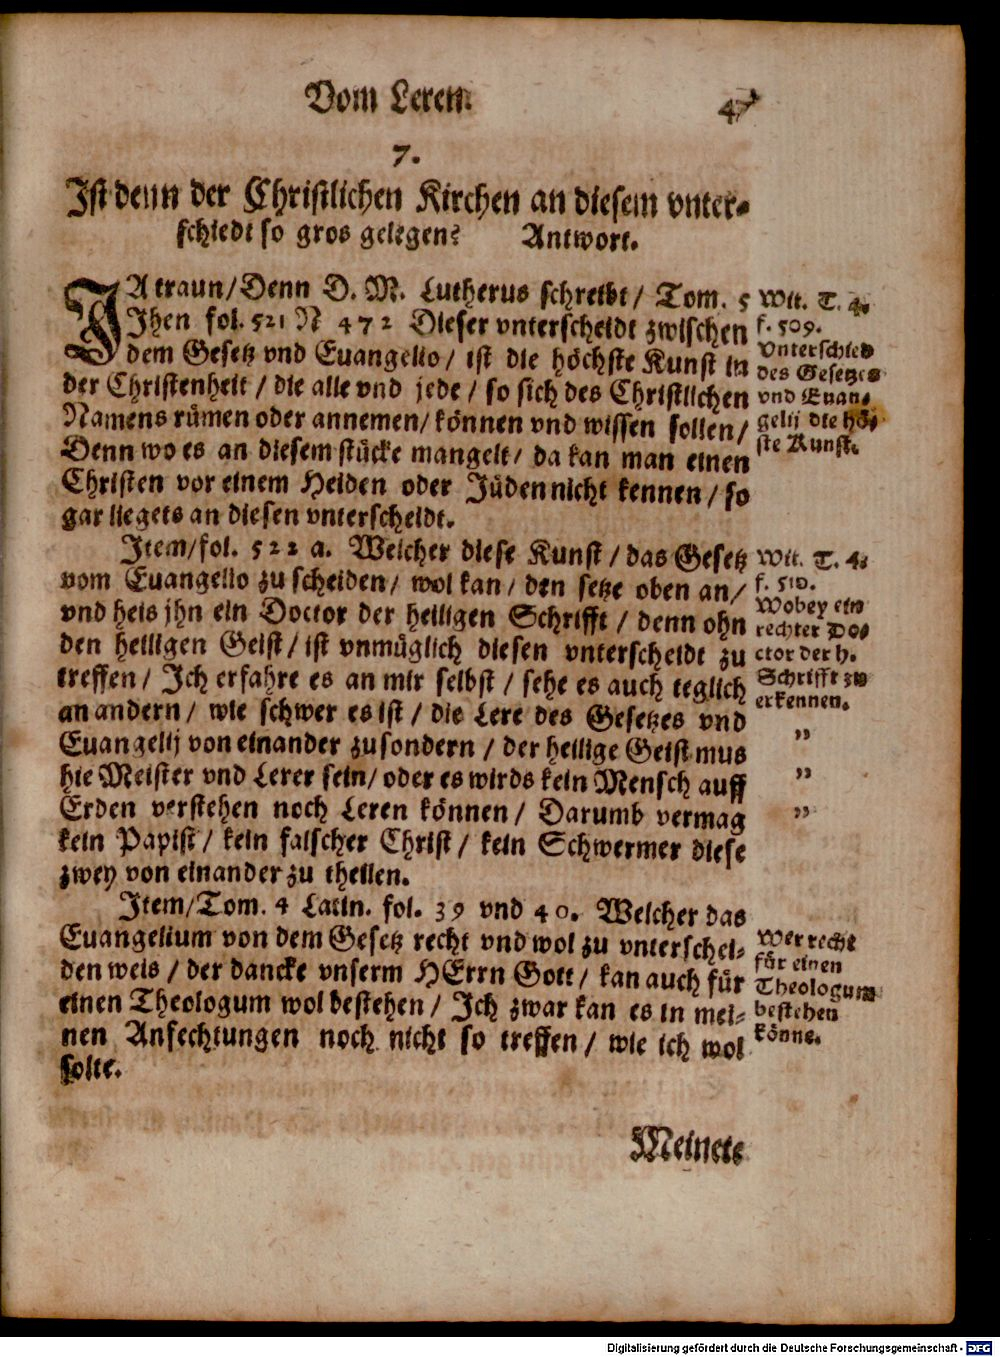 Vom Leren.
47
7.
Ist denn der Christlichen Kirchen an diesem vnter-
schiedt so gros gelegen? Antwort.
JA traun/Denn D. M. Lutherus schreibt/ Tom. 5
Jhen fol. 521 N 472 Dieser vnterscheidt zwischen
dem Gesetz vnd Euangelio/ ist die höchste Kunst in
der Christenheit / die alle vnd jede / so sich des Christlichen
Namens rümen oder annemen/ können vnd wissen sollen/
Denn wo es an diesem stücke mangelt/ da kan man einen
Christen vor einem Heiden oder Jüden nicht kennen / so
gar ligets an diesen vnterscheidt.
Wit. T. 4.
f. 509.
Vnterschied
des Gesetzes
vnd Euan-
gelij die hö-
ste Kunst.
Item/fol. 522 a. Welcher diese Kunst / das Gesetz
vom Euangelio zu scheiden/ wol kan/ den setze oben an/
vnd heis jhn ein Doctor der heiligen Schrifft / denn ohn
den heiligen Geist/ ist vnmüglich diesen vnterscheidt zu
treffen/ Ich erfahre es an mir selbst / sehe es auch teglich
an andern / wie schwer es ist / die Lere des Gesetzes vnd
Euangelij von einander zusondern / der heilige Geist mus
hie Meister vnd Lerer sein/ oder es wirds kein Mensch auff
Erden verstehen noch Leren können / Darumb vermag
kein Papist / kein falscher Christ / kein Schwermer diese
zwey von einander zu theilen.
Wit. T. 4.
f. 510.
Wobey ein
rechter Do-
ctor der h.
Schrifft zu
erkennen.
"
"
"
Item/Tom. 4 Latin. fol. 39 vnd 40. Welcher das
Euangelium von dem Gesetz recht vnd wol zu vnterschei-
den weis / der dancke vnserm HErrn Gott / kan auch für
einen Theologum wol bestehen / Ich zwar kan es in mei-
nen Anfechtungen noch nicht so treffen / wie ich wol
solte.
Wer recht
für einen
Theologum
bestehen
könne.
Meinets
Digitalisierung gefördert durch die Deutsche Forschungsgemeinschaft - DFG